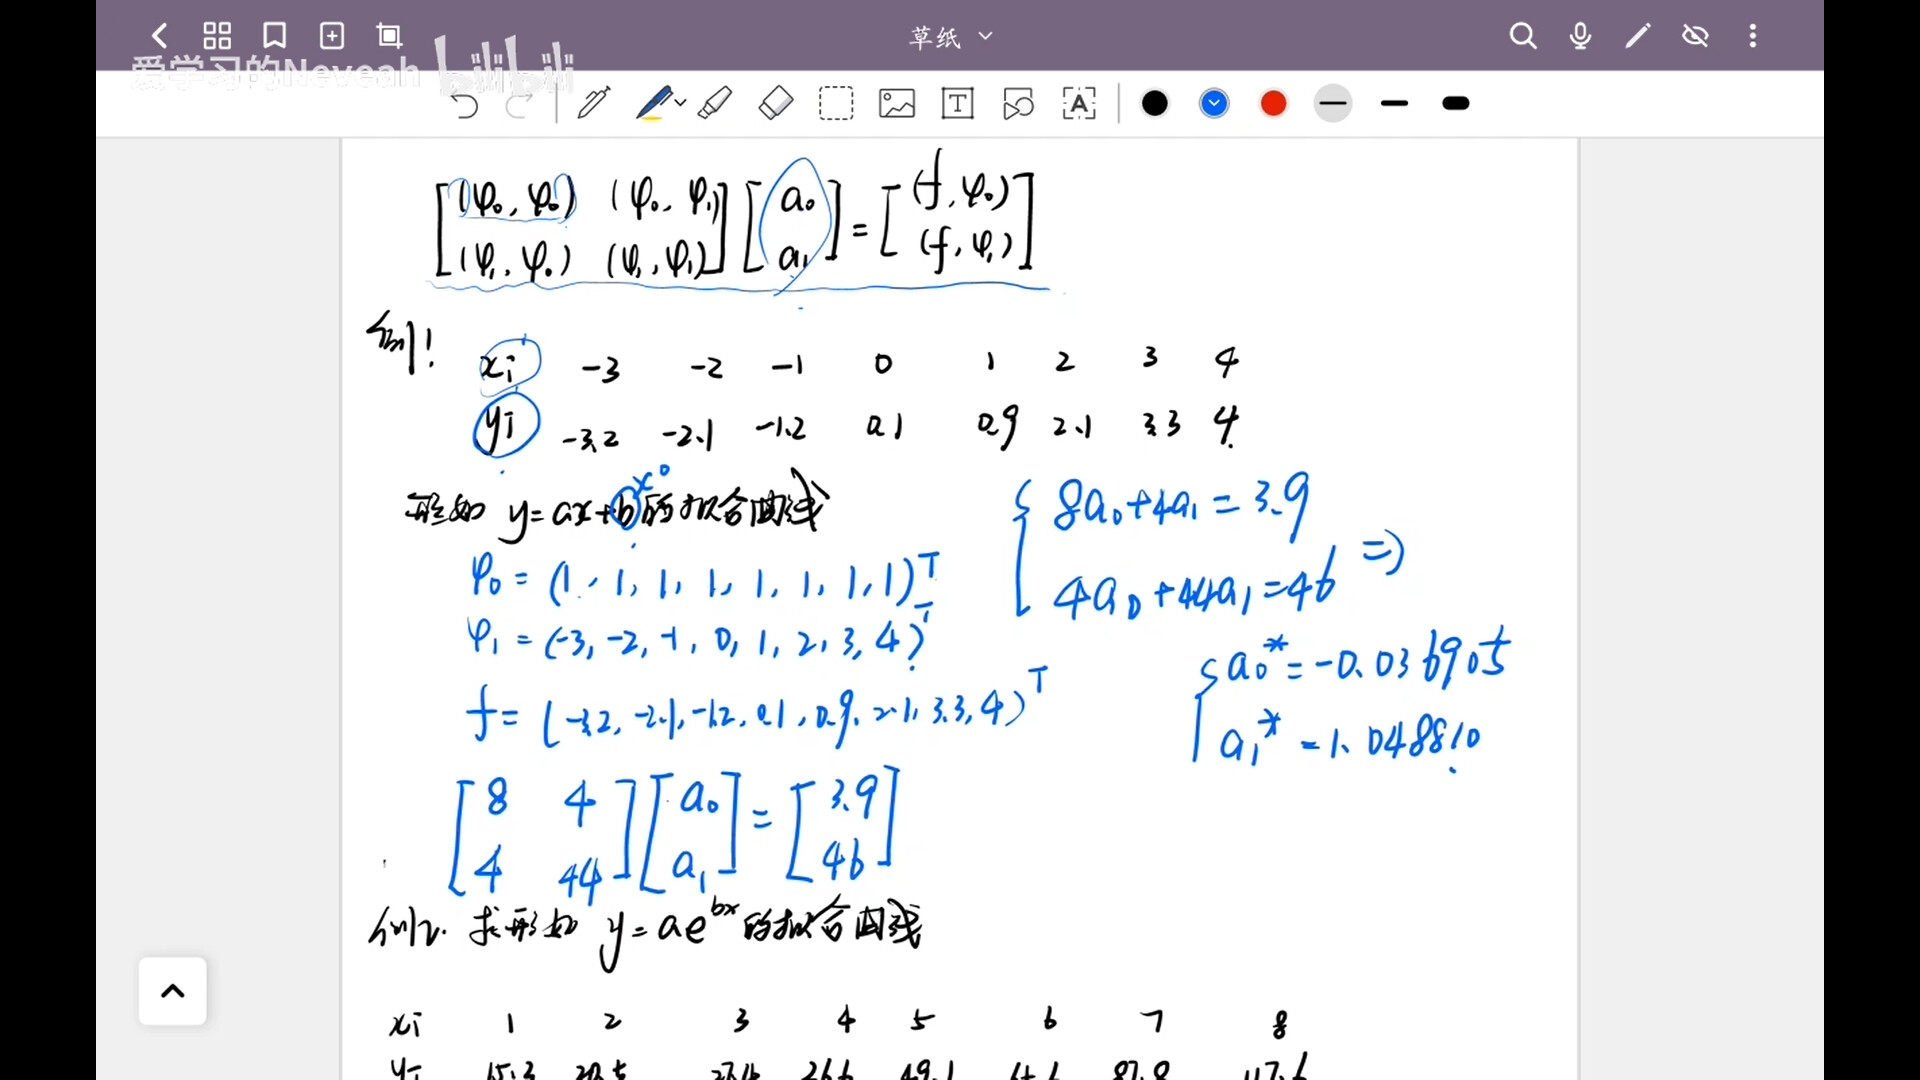 草纸
爱学习的Neveah bilibili
[(φ₀,φ₀) (φ₀,φ₁)] [a₀] = [(f,φ₀)]
[(φ₁,φ₀) (φ₁,φ₁)] [a₁] [(f,φ₁)]
例1
xi -3 -2 -1 0 1 2 3 4
yi -3.2 -2.1 -1.2 0.1 0.9 2.1 3.3 4
形如 y=ax+b x⁰ 的拟合曲线
φ₀ = (1, 1, 1, 1, 1, 1, 1, 1)ᵀ
φ₁ = (-3, -2, -1, 0, 1, 2, 3, 4)ᵀ
f = (-3.2, -2.1, -1.2, 0.1, 0.9, 2.1, 3.3, 4)ᵀ
[8 4] [a₀] = [3.9]
[4 44] [a₁] [46]
{ 8a₀+4a₁=3.9
4a₀+44a₁=46 ⇒
{ a₀* = -0.036905
a₁* = 1.048810
例2. 求形如 y=ae^{bx} 的拟合曲线
xi 1 2 3 4 5 6 7 8